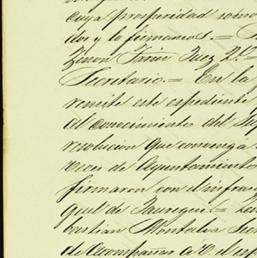 cuya prosperidad sobre
dos y lo firmamos.=
Zenon Juez 2º.=
Secretario.= En la
remite este espediente
al conocimiento del Sup
resolucion que convenga
veces de Ayuntamiento
firmaron con el infras
quel de Jauregui=
bastian Montales
de acompañar á V. el esp